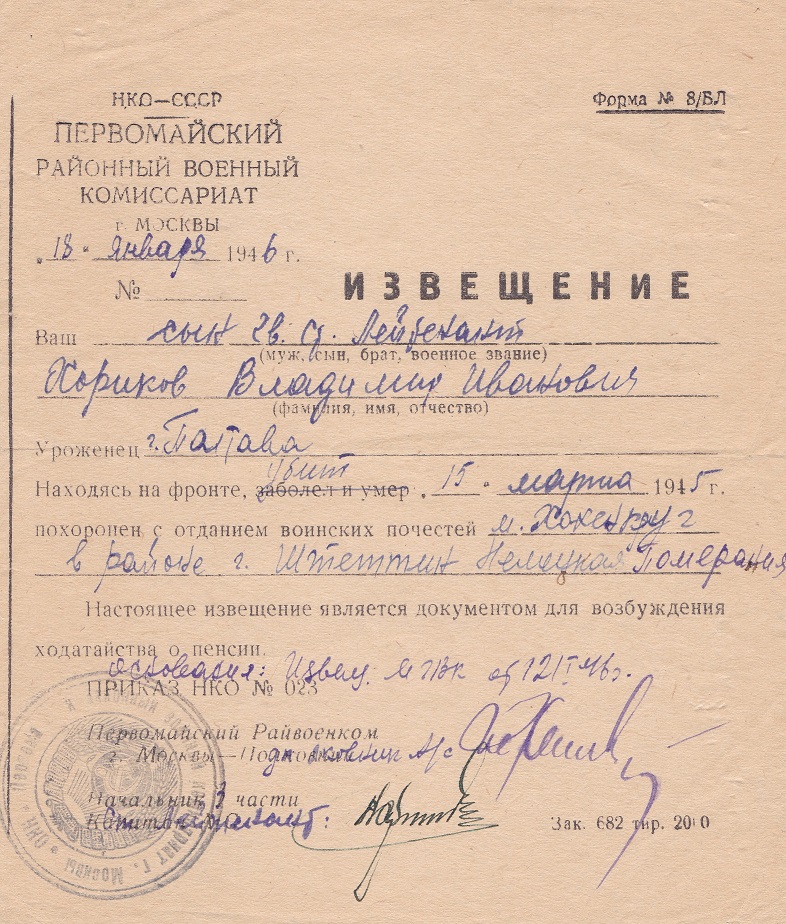 НКО—СССР
Форма № 8/БЛ
ПЕРВОМАЙСКИЙ
РАЙОННЫЙ ВОЕННЫЙ
КОМИССАРИАТ
г. МОСКВЫ
„18“ января 1946 г.
№
ИЗВЕЩЕНИЕ
Ваш сын гв. ст. Лейтенант
(муж, сын, брат, военное звание)
Хориков Владимир Иванович
(фамилия, имя, отчество)
Уроженец г. Полтава
убит
Находясь на фронте, заболел и умер „15“ марта 1945 г.
похоронен с отданием воинских почестей м. Хокенкруг
в районе г. Штеттин Немецкая Померания
Настоящее извещение является документом для возбуждения
ходатайства о пенсии.
основания: Извещ. МГВК от 12/I 46г.
ПРИКАЗ НКО № 023
Первомайский Райвоенком
г. Москвы—Полковник
Начальник 3 части
Капитан
Ст. Лейтенант:
Зак. 682 тир. 2000